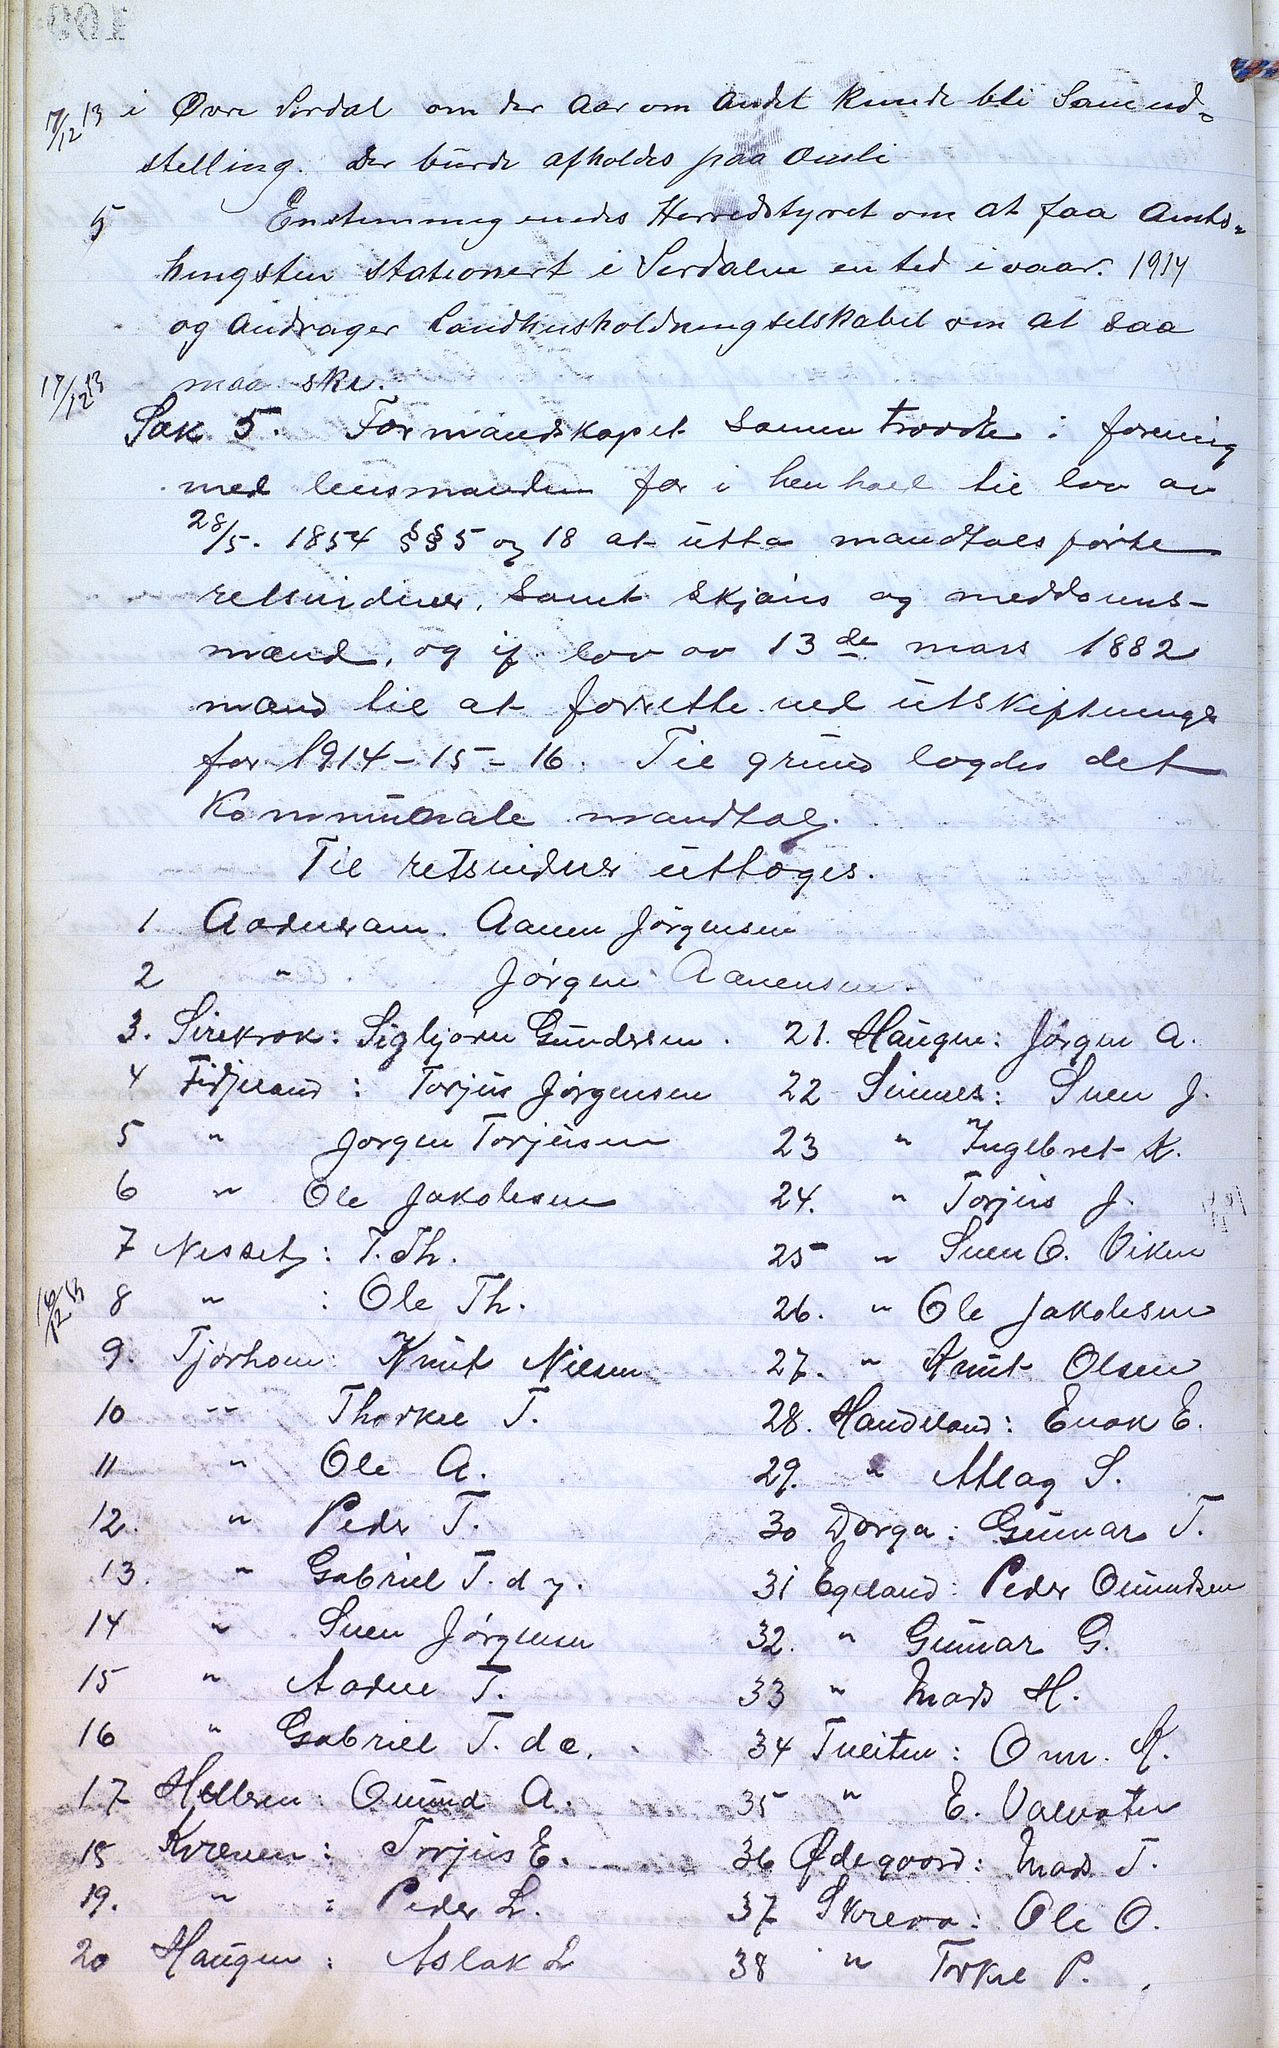 17/12 13 i Øvre Sirdal om der Aar om Andet kunde bli Samud-
stelling. Der burde afholdes paa Omli
5 Enstemmig enedes Herredstyret om at faa Amts-
hingsten stationert i Sirdalen en tid i vaar. 1914
og Andrager Landhusholdningselskabet om at saa
17/12 13 maa ske.
Sak 5. Formandskapet Sammentraadte i forening
med lensmanden for i henhold til lov av
28/5. 1854 §§5 og 18 at utta mandtalsførte
retsvidner, Samt Skjøns og meddoms-
mænd, og if. lov av 13de mars 1882
mænd til at forrette ved utskiftninger
for 1914-15-16. Til grund lagdes det
Kommunale mandtal.
Til retsvidner uttoges.
1 Aadneram. Aanen Jörgensen
2 " Jörgen Aanensen.
3. Sirekrok: Sigbjørn Gundersen.
4 Fidjeland: Torjus Jørgensen
5 " Jørgen Torjusen
6 " Ole Jakobsen
7 Nesset: T. Th.
16/12 13 8 " : Ole Th.
9. Tjørhom: Knut Nilsen
10 " Thorkel T.
11 " Ole A.
12. " Peder T.
13. " Gabriel T. d y.
14 " Sven Jørgensen
15 " Aadne T.
16 " Gabriel T. d e.
17 Helleren: Omund A.
18 Kvæven: Torjus E.
19. " : Peder L.
20 Haugen: Aslak L
21. Haugen: Jørgen A.
22 Sinnes: Sven J.
23 " Ingebret K.
24. " Torjus J.
25 " Sven O. Viken
26. " Ole Jakobsen
27. " Knut Olsen
28. Handeland: Enok E.
29. " Atlag S.
30 Dorga: Gunnar T.
31 Egeland: Peder Omundsen
32. " Gunnar G.
33 " Mads H.
34 Tveiten: Om. K.
35 " E. Valevatn
36 Ødegaard: Mads T.
37 Skreaa: Ole O.
38 " Torkel P.